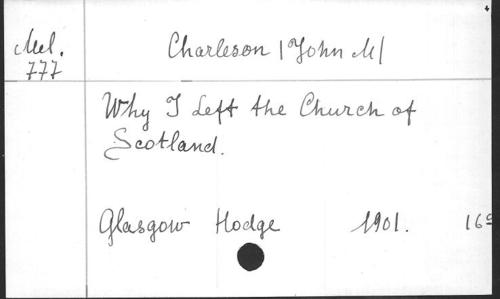 Mel. Charleson /John M/
777
Why I Left the Church of
Scotland.
Glasgow Hodge 1901. 16º